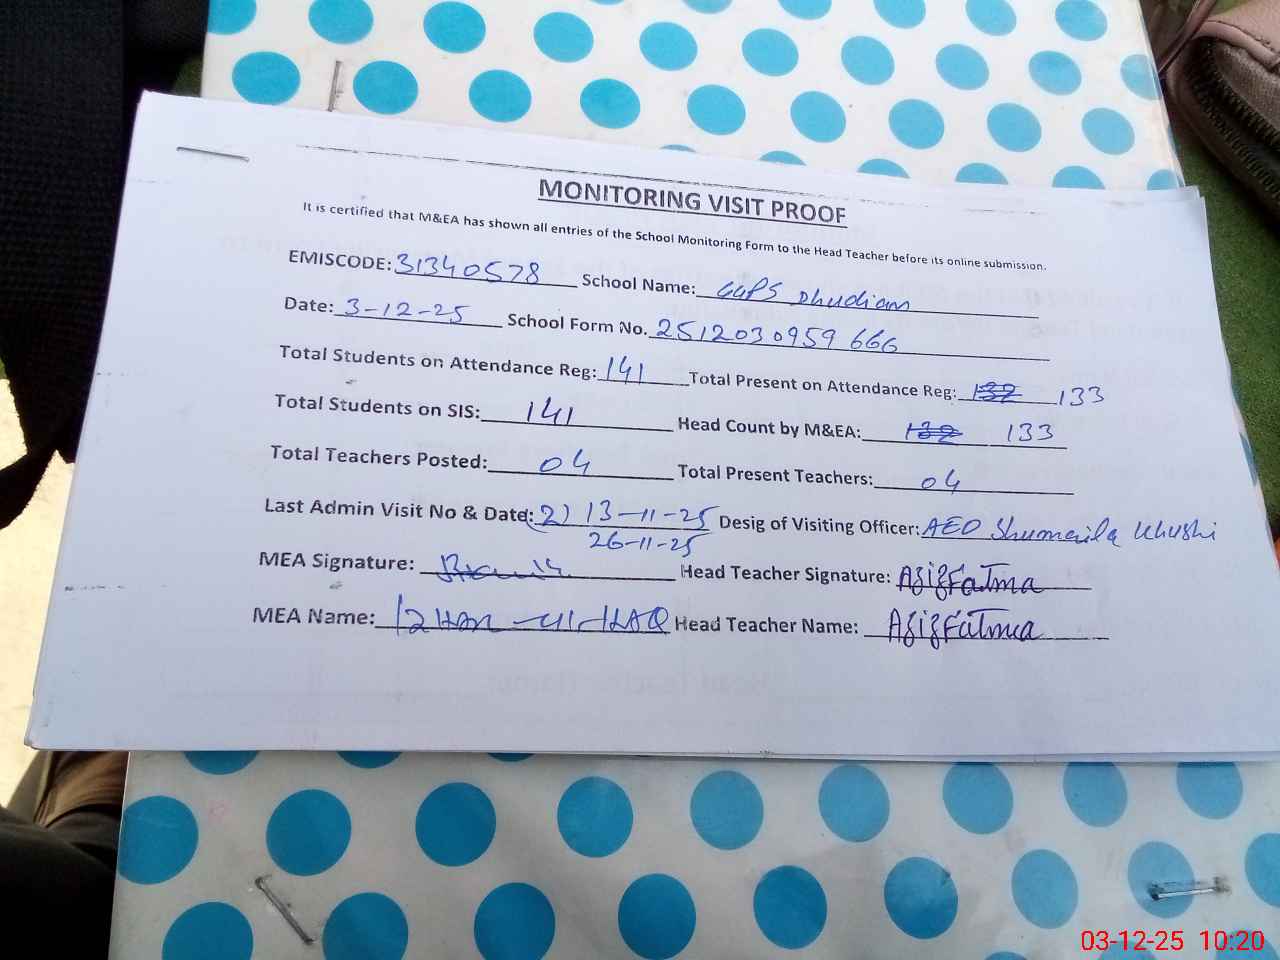 MONITORING VISIT PROOF
It is certified that M&EA has shown all entries of the School Monitoring Form to the Head Teacher before its online submission.
EMISCODE: 31340578 School Name: GGPS Dhudian
Date: 3-12-25 School Form No. 2512030959666
Total Students on Attendance Reg: 141 Total Present on Attendance Reg: 133
Total Students on SIS: 141 Head Count by M&EA: 133
Total Teachers Posted: 04 Total Present Teachers: 04
Last Admin Visit No & Date: (2) 13-11-25 Desig of Visiting Officer: AEO Shumaila Khushi
26-11-25
MEA Signature: Head Teacher Signature: AzizFatma
MEA Name: Izhar-ul-HAQ Head Teacher Name: AzizFatma
03-12-25 10:20